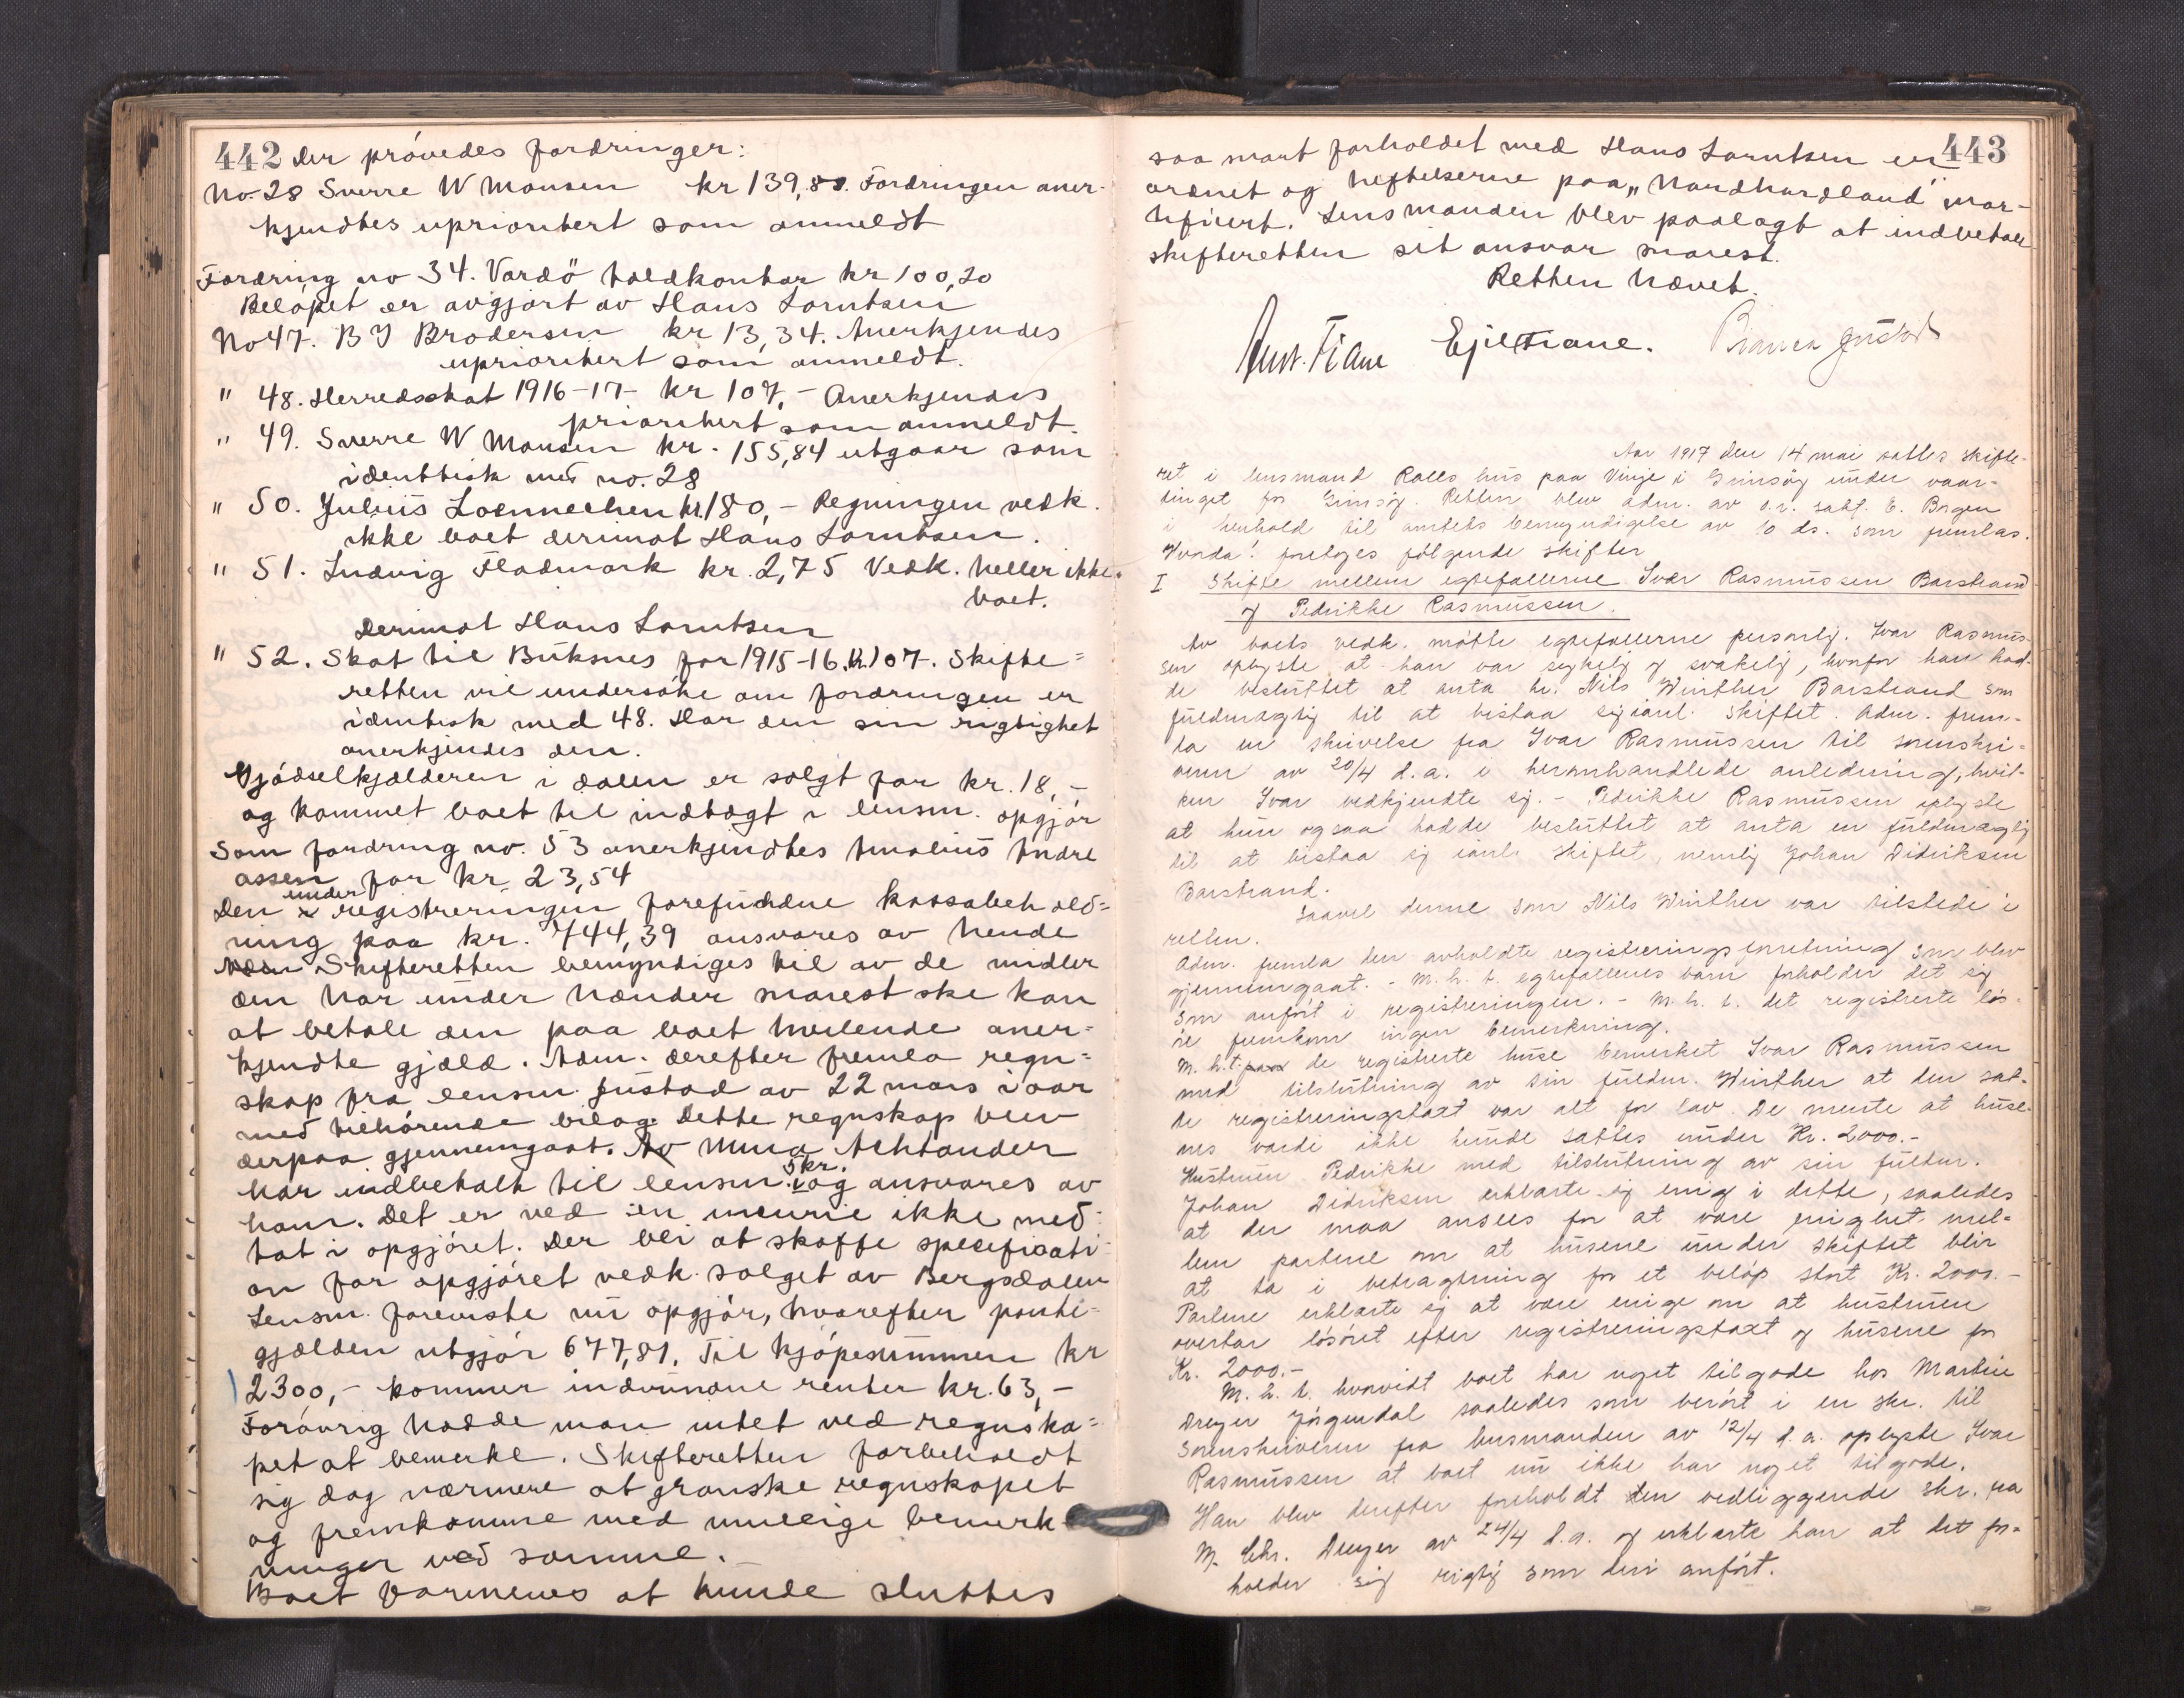 442 Der prövedes fordringer:
No. 28 Sverre W Monsen kr 139,80. Fordringen aner-
kjendtes uprioritert som anmeldt
Fordring no 34. Vardö toldkontor kr 100,20
Belöpet er avgjort av Hans Lorntsen
No 47. B J Brodersen kr 13,34. Anerkjendes
uprioritert som anmeldt.
" 48. Herredsskat 1916-17- kr 107,- Anerkjendes
prioritert som anmeldt.
" 49. Sverre W Monsen kr. 155,84 utgaar som
identisk med no. 28
" 50. Julius Loennechen kr. 180,- Regningen vedk.
ikke boet derimot Hans Lorntsen.
" 51. Ludvig Flodmark kr. 2,75 Vedk. heller ikke
boet.
Derimot Hans Lorntsen
" 52. Skat til Buksnes for 1915-16 kr. 107. Skifte=
retten vil undersöke om fordringen er
identisk med 48. Har den sin rigtighet
anerkjendes den.
Gjödselkjælderen i dalen er solgt for kr. 18,-
og kommet boet til indtægt i lensm. opgjör
Som fordring no. 53 anerkjendtes Andre
assen for kr 23,54
Den under registreringen forefundne kassabehold=
ning paa kr. 744,39 ansvares av hende
Skifteretten bemyndiges til av de midler
den har under hænder snarest ske kan
at betale den paa boet hvilende aner=
kjendte gjæld. Adm. derefter fremla regn=
skap fra lensm. Justad av 22 mars i aar
med tilhörende bilag. Dette regnskap blev
derpaa gjennemgaat. Av Mina
har indbetalt til lensm. 5 kr. og ansvares av
ham. Det er ved en incurie ikke med=
tat i opgjöret. Der bli at skaffe specificati
on for opgjöret vedk. salget av Bergsdalen
Lensm. foreviste nu opgjör, hvorefter pante=
gjælden utgjör 677,81. Til kjöpesummen kr
2300,- kommer indvundne renter kr. 63,-
Forövrig hadde man intet ved regnska=
pet at bemerke. Skifteretten forbeholdt
sig dog nærmere at granske regnskapet
og fremkomme med mulige bemerk
ninger ved samme.-
Boet formenes at kunde sluttes
443
saa snart forholdet med Hans Lorntsen er
ordnet og heftelserne paa „Nordhordland" mor-
tificert. Lensmanden blev paalagt at indbetale
skifteretten sit ansvar snarest.
Retten hævet.
Aust. Tiane Ejil Tiane. Justad
Aar 1917 den 14 mai sattes skifte-
ret i lensmand Rolls hus paa Vinje i Gimsöy under vaar-
tinget for Gimsöy. Retten blev adm. av o.r. sakf. E. Bogen
i henhold til amtets bemyndigelse av 10 ds. som fremlas.
Hvorda! foretoges fölgende skifter
I Skifte mellem egtefællerne Ivar Rasmussen Barstrand
og Pedrikke Rasmussen.
Av boets vedk. mötte egtefællerne personlig. Ivar Rasmus-
sen oplyste at han var sykelig og svakelig, hvorfor han had-
de besluttet at anta hr. Nils Winther Barstrand som
fuldmægtig til at bistaa sig i anl. skiftet. Adm. frem-
la en skrivelse fra Ivar Rasmussen til sorenskri-
veren av 20/4 d.a. i heromhandlede anledning, hvil-
ken Ivar vedkjendte sig. - Pedrikke Rasmussen oplyste
at hun ogsaa hadde besluttet at anta en fuldmægtig
til at bistaa sig i anl. skiftet, nemlig Johan Didriksen
Barstrand.
Saavel denne som Nils Winther var tilstede i
retten.
Adm. fremla den avholdte registreringsforretning som blev
gjennemgaat. - M.h.t. egtefællenes barn forholder det sig
som anfört i registreringen. - M.h.t. det registrerte lös-
öre fremkom ingen bemerkning.
M.h.t. de registrerte huse bemerket Ivar Rasmussen
med tilslutning av sin fuldm. Winther at den sat-
te registreringstaxt var alt for lav. De mente at huse-
nes værdi ikke kunde sattes under Kr. 2000.-
Hustruen Pedrikke med tilslutning av sin fuldm.
Johan Didriksen erklærte sig enig i dette, saaledes
at der maa ansees for at være enighet mel=
lem partene om at husene under skiftet blir
at ta i betragtning for et belöp stort Kr. 2000.-
Partene erklærte sig at være enige om at hustruen
overtar lösöret efter registreringstaxt og husene for
Kr. 2000.-
M.h.t. hvorvidt boet har noget tilgode hos Martin
Dreyer Jörgendal saaledes som berört i en skr. til
sorenskriveren fra lensmanden av 12/4 d.a. oplyste Ivar
Rasmussen at boet nu ikke har noget tilgode.
Han blev derefter foreholdt den vedliggende skr. fra
M. Chr. Dreyer av 24/4 d.a. og erklærte han at det for-
holder sig rigtig som deri anfört.